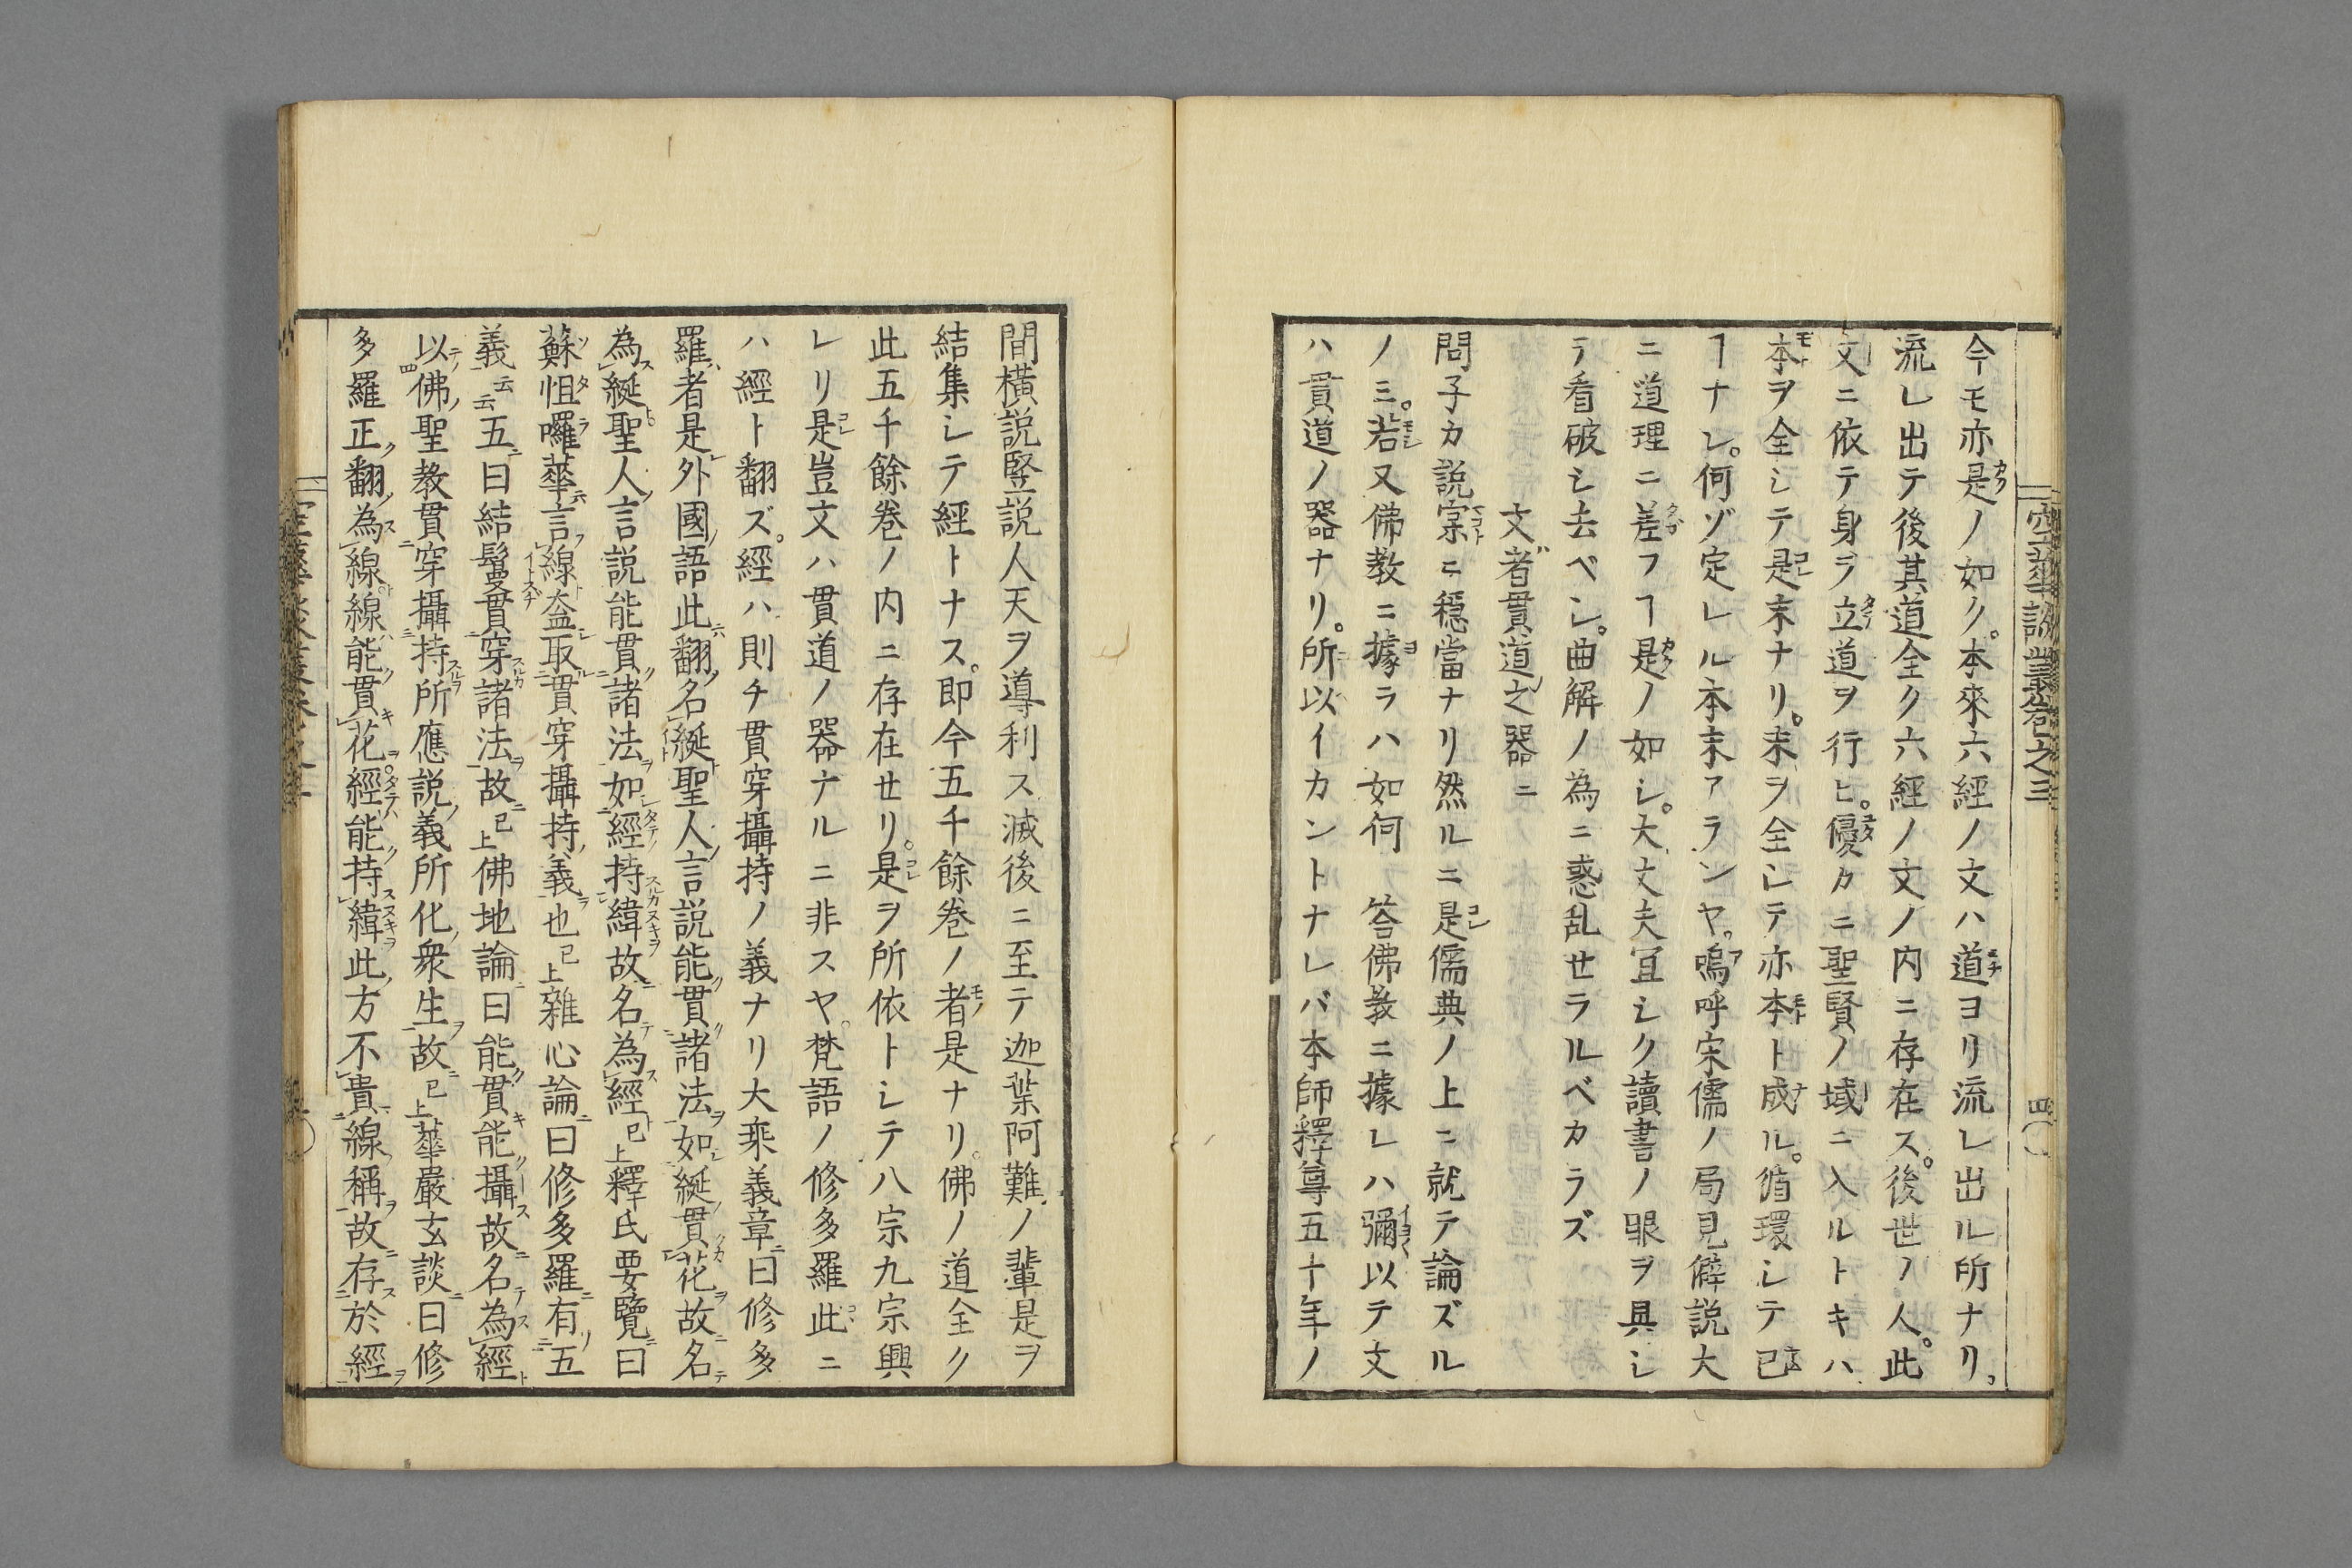 空華談叢卷之三
四
今モ亦是ノ如ク。本來六經ノ文ハ道ヨリ流レ出ル所ナリ。
流レ出テ後其道全ク六經ノ文ノ内ニ存在ス。後世ノ人。此
文ニ依テ身ヲ立道ヲ行ヒ。優カニ聖賢ノ域ニ入ルトキハ
本ヲ全シテ是末ナリ。末ヲ全シテ亦本ト成ル。循環シテ已
ヿナシ。何ゾ定レル本末アランヤ。嗚呼宋儒ノ局見僻説大
ニ道理ニ差フヿ是ノ如シ。大丈夫冝シク讀書ノ眼ヲ具シ
ラ看破シ去ベシ。曲解ノ為ニ惑乱せラルベカラズ
文者貫道之器ニ
問子カ説寔ニ穩當ナリ然ルニ是儒典ノ上ニ就テ論ズル
ノミ。若又佛教ニ據ラハ如何　答佛教ニ據レハ彌以テ文
ハ貫道ノ器ナリ。所以イカントナレバ本師釋尊五十年ノ
間橫説竪説人天ヲ導利ス滅後ニ至テ迦葉阿難ノ輩是ヲ
結集シテ經トナス。即今五千餘卷ノ者是ナリ。佛ノ道全ク
此五千餘卷ノ内ニ存在せリ。是ヲ所依トシテ八宗九宗興
レリ是豈文ハ貫道ノ器ナルニ非スヤ。梵語ノ修多羅此ニ
ハ經ト翻ズ。經ハ則チ貫穿攝持ノ義ナリ大乘義章曰修多
羅者是外國語此翻名綖聖人言説能貫諸法如綖貫花故名
為綖聖人言説能貫諸法如經持緯故名為經已上釋氏要覽曰
蘇怛囉華言線盖取貫穿攝持義也已上雜心論曰修多羅有五
義云云五曰結鬘貫穿諸法故已上佛地論曰能貫能攝故名為經
以佛聖教貫穿攝持所應説義所化衆生故已上華嚴玄談曰修
多羅正翻為線線能貫花經能持緯此方不貴線稱故存於經